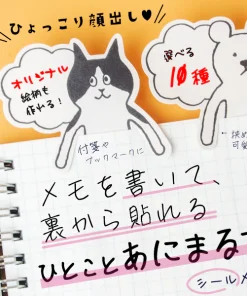 ひょっこり顔出し♥
オリジナル
絵柄も
作れる!
選べる
10種
付箋や
ブックマークに
メモを書いて、
裏から貼れる
ひとことあにまる
シール